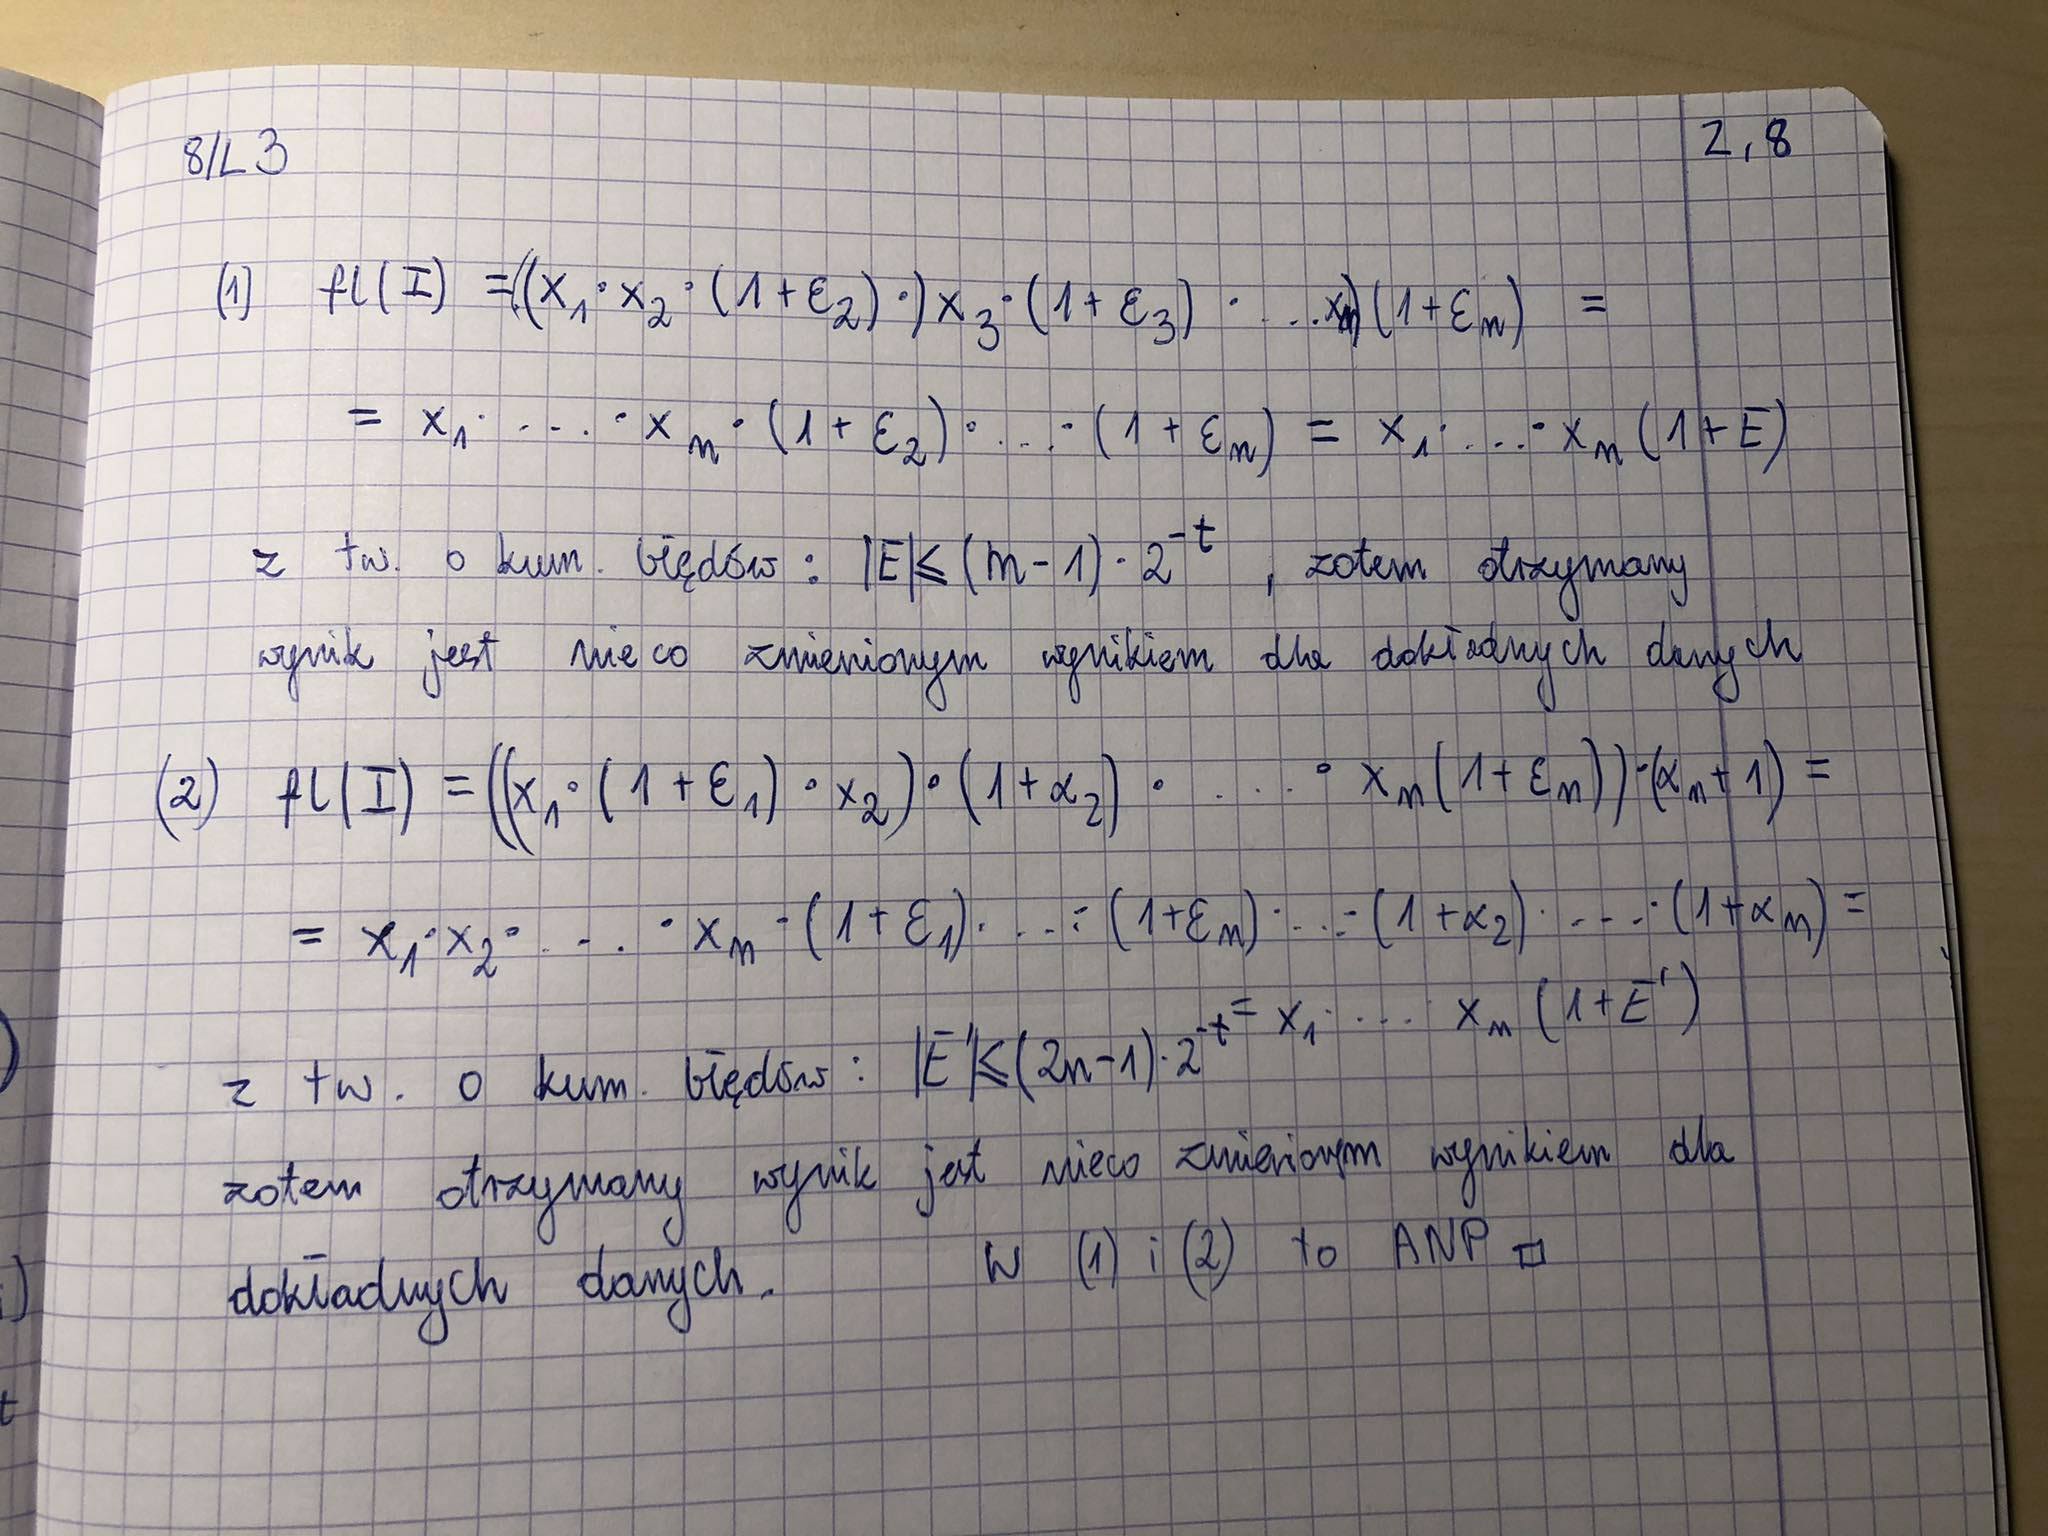 8/L3
Z, 8
(1) fl(I) = ((x₁·x₂·(1+ε₂)·)x₃·(1+ε₃)· ... xₙ)(1+εₙ) =
= x₁· ... ·xₙ·(1+ε₂)· ... ·(1+εₙ) = x₁· ... ·xₙ(1+E)
z tw. o kum. błędów: |E|≤(n-1)·2⁻ᵗ, zatem otrzymany
wynik jest nieco zmienionym wynikiem dla dokładnych danych
(2) fl(I) = ((x₁·(1+ε₁)·x₂)·(1+α₂)· ... ·xₙ(1+εₙ))·(αₙ+1) =
= x₁·x₂· ... ·xₙ·(1+ε₁)· ... ·(1+εₙ)· ... ·(1+α₂)· ... ·(1+αₙ) =
= x₁· ... xₙ(1+E')
z tw. o kum. błędów: |E'|≤(2n-1)·2⁻ᵗ
zatem otrzymany wynik jest nieco zmienionym wynikiem dla
dokładnych danych. W (1) i (2) to ANP □